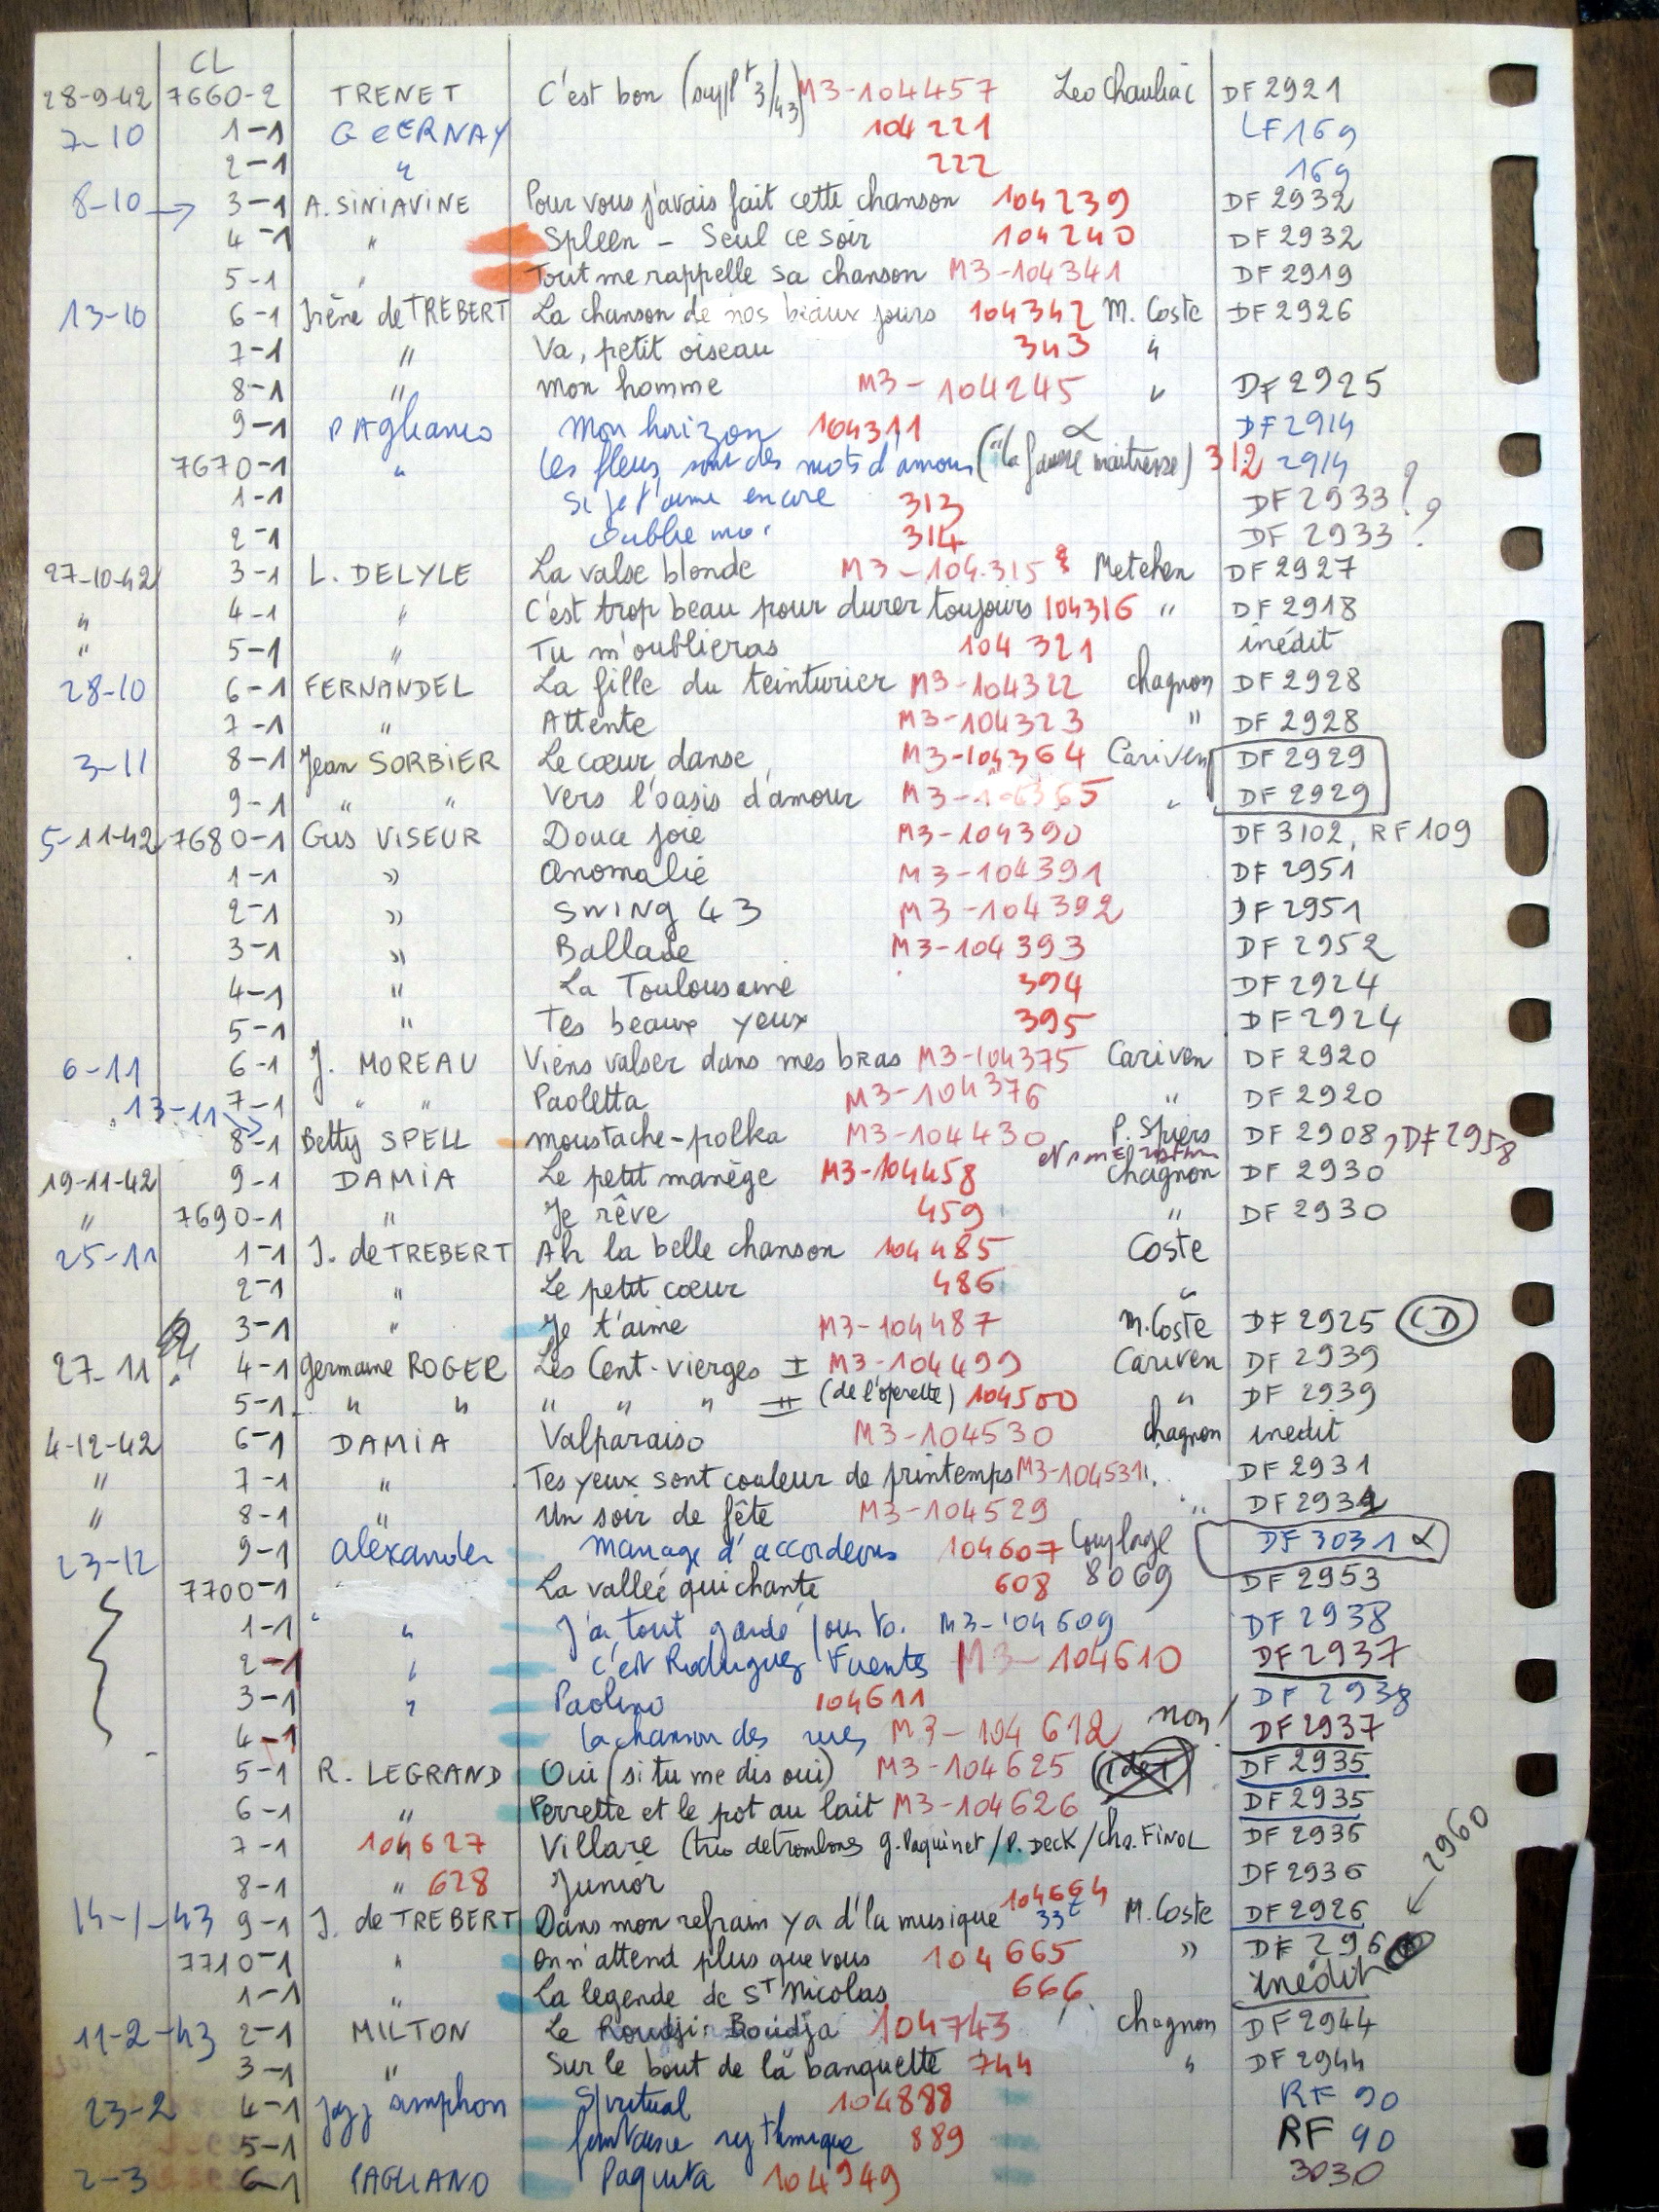 CL
28-9-42 7660-2 TRENET C'est bon (suppt 3/43) M3-104457 Leo Chauliac DF 2921
7-10 1-1 104221 LF169
2-1 " 222 169
8-10 → 3-1 A. SINIAVINE Pour vous j'avais fait cette chanson 104239 DF 2932
4-1 " Spleen - Seul ce soir 104240 DF 2932
5-1 " Tout me rappelle sa chanson M3-104341 DF 2919
13-10 6-1 Irène de TREBERT La chanson de nos beaux jours 104342 M. Coste DF 2926
7-1 " Va, petit oiseau 343 "
8-1 " mon homme M3-104245 " DF 2925
9-1 PAgliano Mon horizon 104311 α DF 2914
7670-1 " les fleurs sont des mots d'amour ("la fausse maitresse) 312 2914
1-1 Si je t'aime encore 313 DF 2933 ?
2-1 oublie moi 314 DF 2933 ?
27-10-42 3-1 L. DELYLE La valse blonde M3-104.315 Metehen DF 2927
" 4-1 " C'est trop beau pour durer toujours 104316 " DF 2918
" 5-1 " Tu m'oublieras 104 321 inédit
28-10 6-1 FERNANDEL La fille du teinturier M3-104322 Chagnon DF 2928
7-1 " Attente M3-104323 " DF 2928
3-11 8-1 Jean SORBIER Le cœur danse M3-104364 Cariven DF 2929
9-1 " " Vers l'oasis d'amour M3-104365 " DF 2929
5-11-42 7680-1 Gus VISEUR Douce joie M3-104390 DF 3102, RF 109
1-1 " Anomalie M3-104391 DF 2951
2-1 " SWING 43 M3-104392 DF 2951
3-1 " Ballade M3-104393 DF 2952
4-1 " La Toulousaine 394 DF 2924
5-1 " Tes beaux yeux 395 DF 2924
6-11 6-1 J. MOREAU Viens valser dans mes bras M3-104375 Cariven DF 2920
7-1 " " Paoletta M3-104376 " DF 2920
13-11 → 8-1 Betty SPELL moustache-polka M3-104430 P. Spiers DF 2908, DF 2958
19-11-42 9-1 DAMIA Le petit manège M3-104458 Chagnon DF 2930
" 7690-1 " Je rêve 459 " DF 2930
25-11 1-1 I. de TREBERT Ah la belle chanson 104485 Coste
2-1 " Le petit cœur 486 "
3-1 " Je t'aime M3-104487 M. Coste DF 2925 (CD)
27-11 ? 4-1 Germaine ROGER Les Cent-vierges I M3-104499 Cariven DF 2939
5-1 " " " " " II (de l'opérette) 104500 " DF 2939
4-12-42 6-1 DAMIA Valparaiso M3-104530 Chagnon inedit
" 7-1 " Tes yeux sont couleur de printemps M3-104531 DF 2931
" 8-1 " Un soir de fête M3-104529 " DF 2931
23-12 9-1 Alexander mariage d'accordéons 104607 Couplage DF 3031 α
7700-1 La vallée qui chante 608 8069 DF 2953
1-1 " J'ai tout gardé pour to. M3-104609 DF 2938
2-1 " C'est Rodriguez Fuentes M3-104610 DF 2937
3-1 " Paolino 104611 DF 2938
4-1 la chanson des rues M3-104612 non! DF 2937
5-1 R. LEGRAND Oui (si tu me dis oui) M3-104625 DF 2935
6-1 " Perrette et le pot au lait M3-104626 DF 2935
7-1 104627 Villare (trio de trombones G. Paquinet / P. DECK / Cha. FINOL DF 2936
8-1 " 628 Junior DF 2936
→ 2960
14-1-43 9-1 I. de TREBERT Dans mon refrain y a d'la musique 104664 33t M. Coste DF 2926
7710-1 " on n'attend plus que vous 104665 " DF 296
1-1 " La legende de ST Nicolas 666 inedit
11-2-43 2-1 MILTON Le Roudji-Boudja 104743 chagnon DF 2944
3-1 " Sur le bout de la banquette 744 " DF 2944
23-2 4-1 Jazz symphon Spiritual 104888 RF 90
5-1 fantaisie rythmique 889 RF 90
2-3 6-1 PAGLIANO Paquita 104949 3030